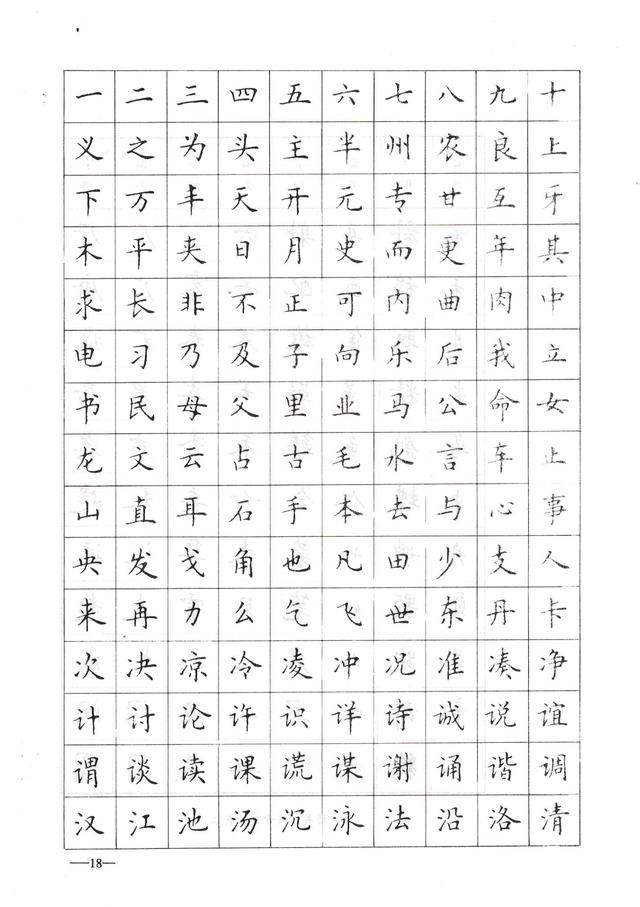 一 二 三 四 五 六 七 八 九 十
义 之 为 头 主 半 州 农 良 上
下 万 丰 天 开 元 专 甘 互 牙
木 平 夹 日 月 史 而 更 年 其
求 长 非 不 正 可 内 曲 肉 中
电 习 乃 及 子 向 乐 后 我 立
书 民 母 父 里 业 马 公 命 女
龙 文 云 占 古 毛 水 言 车 止
山 直 耳 石 手 本 去 与 心 事
央 发 戈 角 也 凡 田 少 支 人
来 再 力 么 气 飞 世 东 丹 卡
次 决 凉 冷 凌 冲 况 准 凑 净
计 讨 论 许 识 详 诗 诚 说 谊
谓 谈 读 课 谎 谋 谢 诵 谐 调
汉 江 池 汤 沉 泳 法 沿 洛 清
—18—